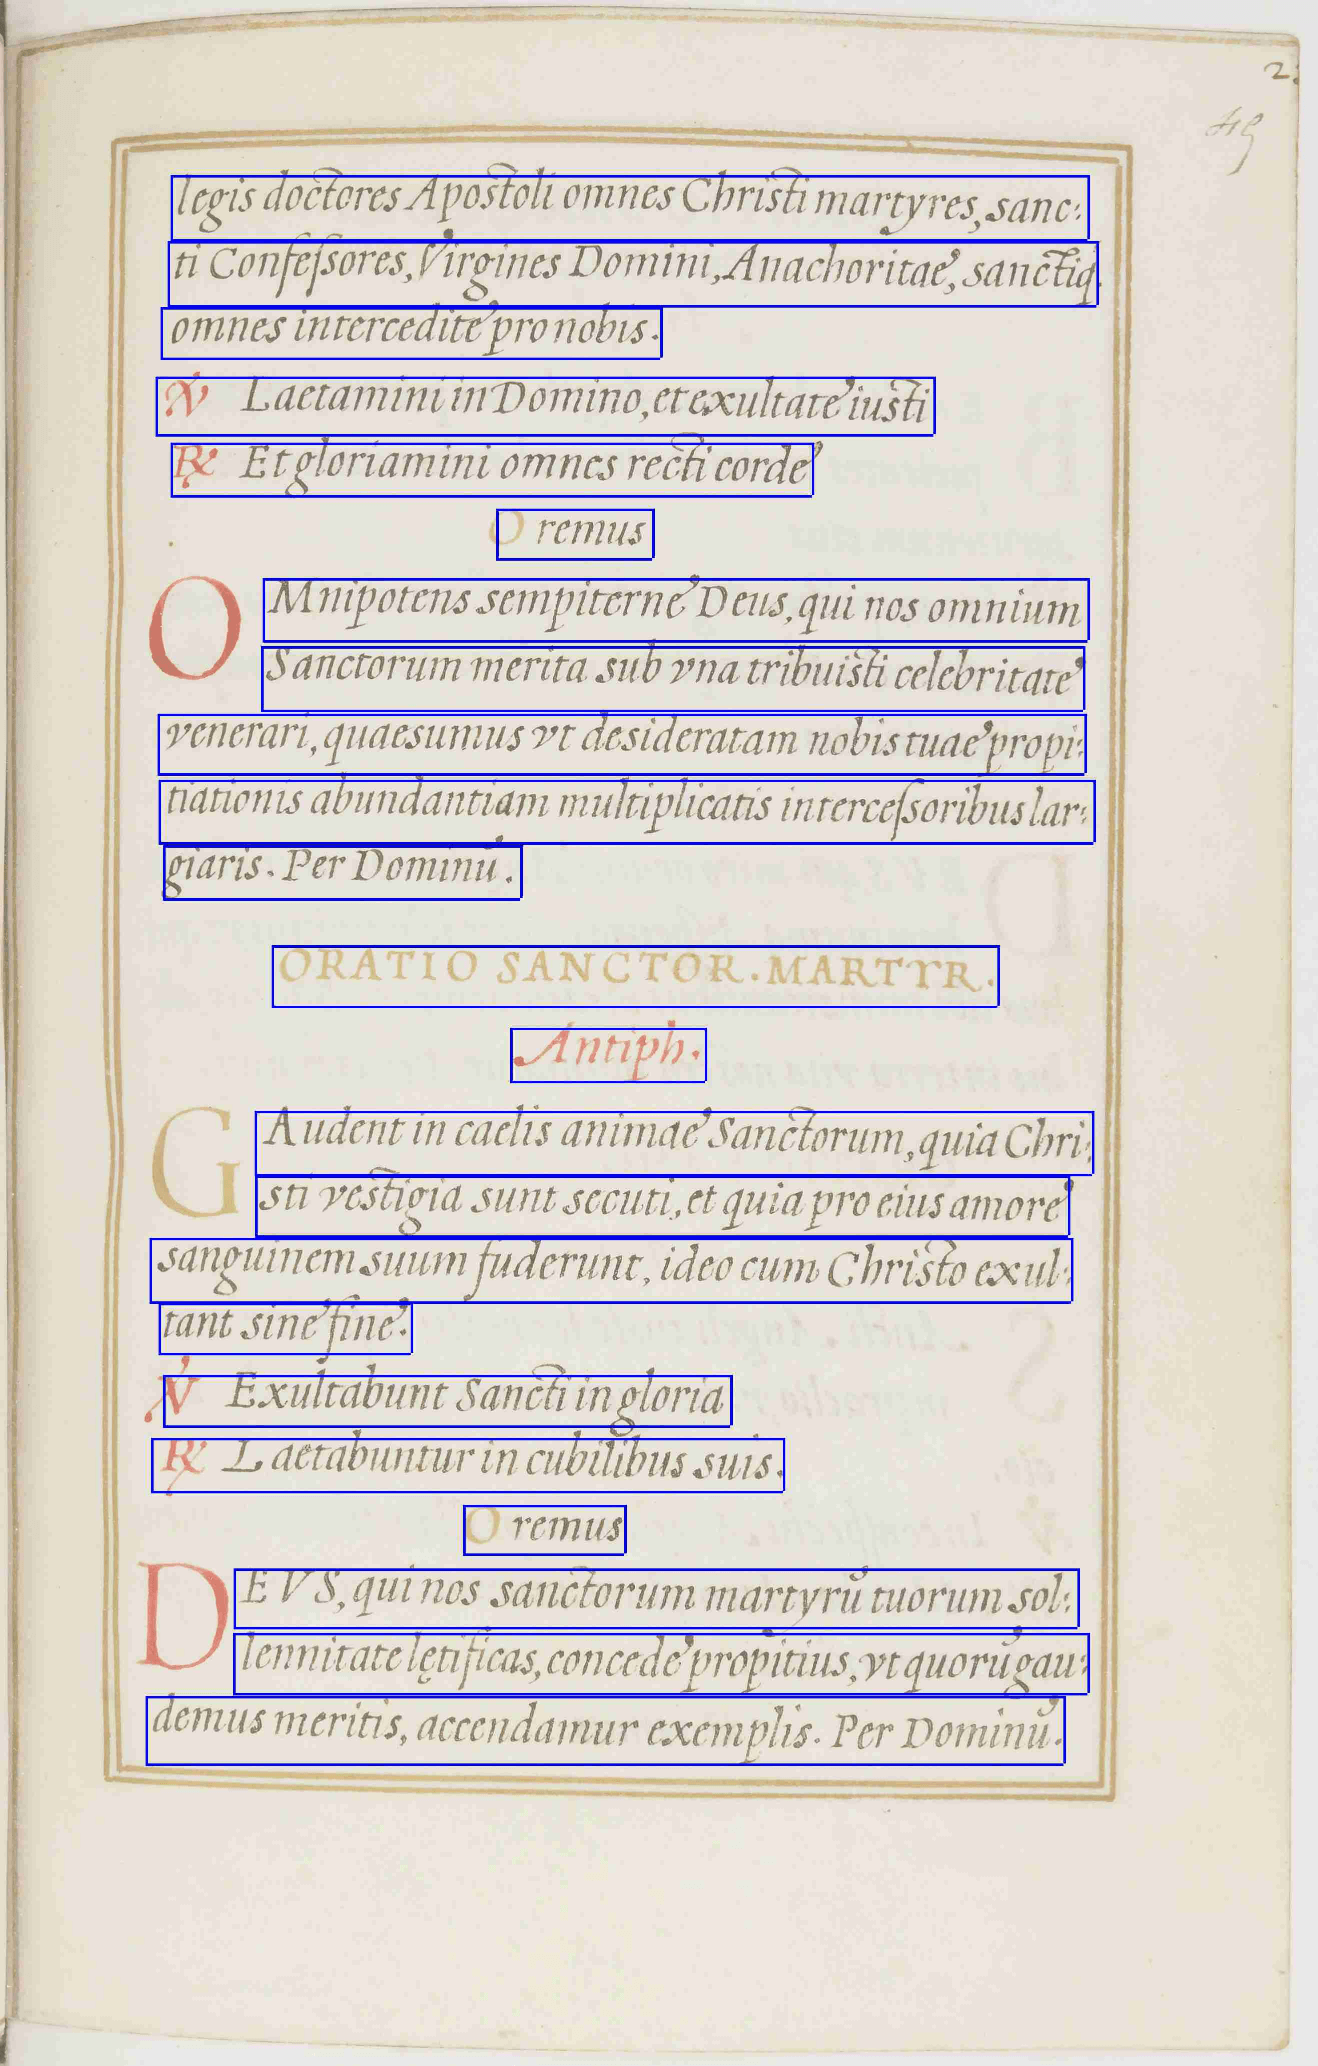 2
49
legis doctores Apostoli omnes Christi martyres, sanc:
ti Confeſsores, Virgines Domini, Anachoritae, sanctiq
omnes intercedite pro nobis.
℣ Laetamini in Domino, et exultate iusti
℟ Et gloriamini omnes recti corde
Oremus
OMnipotens sempiterne Deus, qui nos omnium
Sanctorum merita sub vna tribuisti celebritate
venerari, quaesumus vt desideratam nobis tuae propi:
tiationis abundantiam multiplicatis interceſsoribus lar:
giaris. Per Dominū.
ORATIO SANCTOR. MARTYR.
Antiph.
GAudent in caelis animae Sanctorum, quia Chri:
sti vestigia sunt secuti, et quia pro eius amore
sanguinem suum fuderunt, ideo cum Christo exul:
tant sine fine.
℣ Exultabunt Sancti in gloria
℟ Laetabuntur in cubilibus suis.
Oremus
DEVS, qui nos sanctorum martyrū tuorum sol:
lennitate lętificas, concede propitius, vt quorū gau:
demus meritis, accendamur exemplis. Per Dominū.